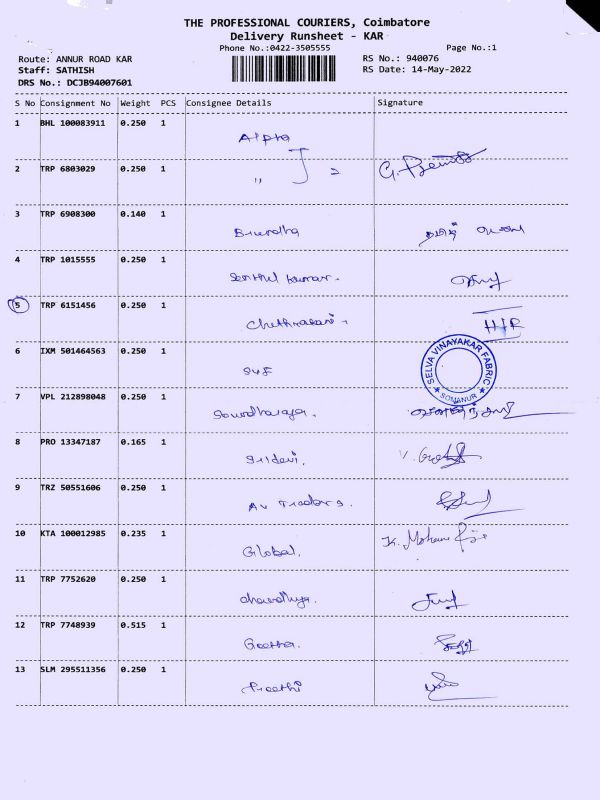 THE PROFESSIONAL COURIERS, Coimbatore
Delivery Runsheet - KAR
Phone No.:0422-3505555
Page No.:1
Route: ANNUR ROAD KAR
RS No.: 940076
Staff: SATHISH
RS Date: 14-May-2022
DRS No.: DCJB94007601
S No Consignment No Weight PCS Consignee Details Signature
1 BHL 100083911 0.250 1
Alpha
2 TRP 6803029 0.250 1
,,
3 TRP 6908300 0.140 1
Brundha
4 TRP 1015555 0.250 1
Senthil kumar.
5 TRP 6151456 0.250 1
H/R
6 IXM 501464563 0.250 1
SELVA VINAYAKAR FABRIC
SOMANUR
7 VPL 212898048 0.250 1
8 PRO 13347187 0.165 1
Sridevi.
9 TRZ 50551606 0.250 1
AV Traders.
10 KTA 100012985 0.235 1
K. Mohan
Global.
11 TRP 7752620 0.250 1
12 TRP 7748939 0.515 1
Geetha.
13 SLM 295511356 0.250 1
Preethi